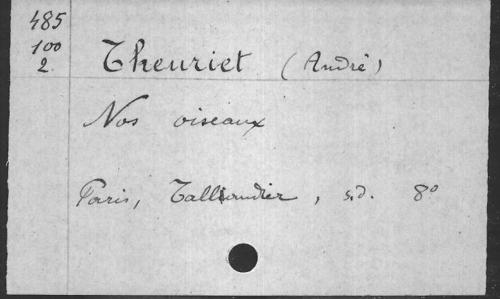 485
100
2.
Theuriet (André)
Nos oiseaux
Paris, Tallandier, s.d. 8°